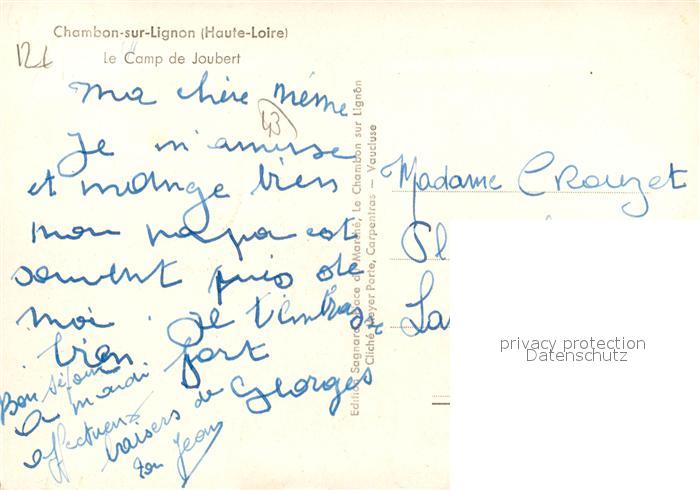 Chambon-sur-Lignon (Haute-Loire)
Le Camp de Joubert
12f
Ma chère Mémé
43
Je m'amuse
et mange bien
mon papa est
souvent près de
moi. Je t'embrasse
bien fort
Georges
Bon séjour
à mardi
affectueux
baisers de
ton Jean
Edition Sagnard, Place du Marché, Le Chambon sur Lignon
Cliché Meyer Porte, Carpentras — Vaucluse
Madame Crouzet
Pl
La
privacy protection
Datenschutz